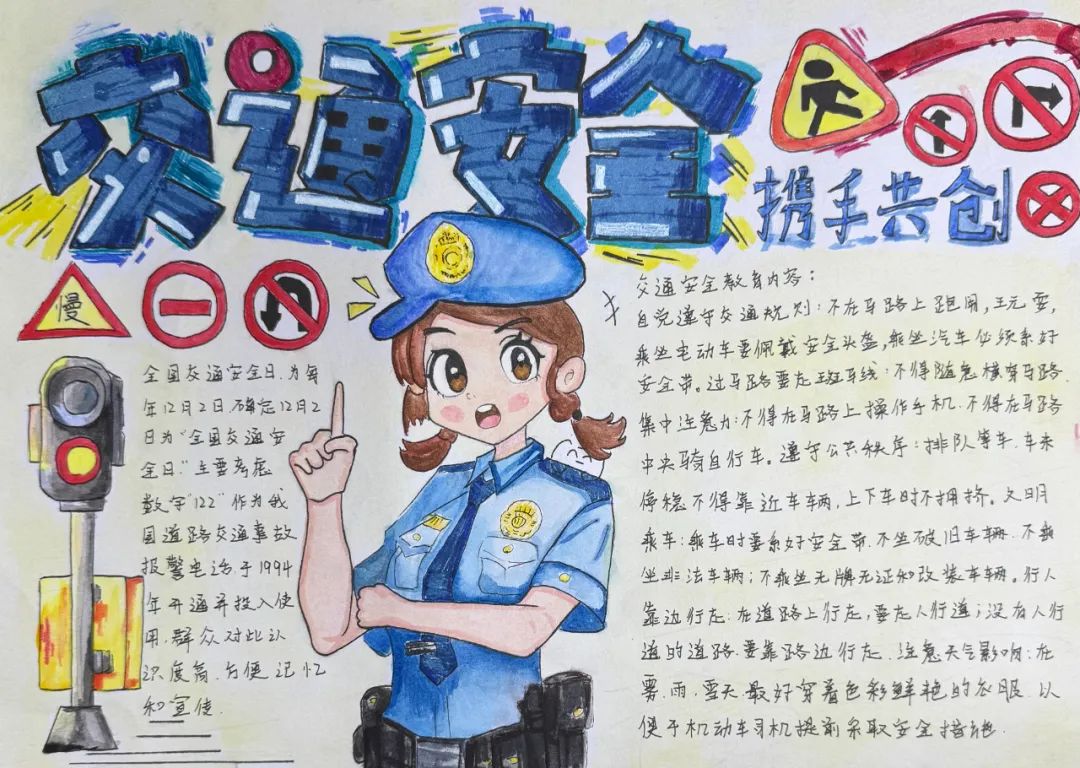 交通安全
携手共创
慢
全国交通安全日,为每
年12月2日确定12月2
日为“全国交通安
全日”主要考虑
数字“122”作为我
国道路交通事故
报警电话.于1994
年开通并投入使
用.群众对此认
识度高.方便记忆
和宣传.
交通安全教育内容:
自觉遵守交通规则:不在马路上跑闹,玩耍,
乘坐电动车要佩戴安全头盔,乘坐汽车必须系好
安全带。过马路要走斑马线:不得随意横穿马路.
集中注意力:不得在马路上操作手机.不得在马路
中央骑自行车。遵守公共秩序:排队等车.车未
停稳不得靠近车辆,上下车时不拥挤。文明
乘车:乘车时要系好安全带.不坐破旧车辆.不乘
坐非法车辆;不乘坐无牌无证和改装车辆。行人
靠边行走:在道路上行走,要走人行道;没有人行
道的道路.要靠路边行走.注意天气影响:在
雾.雨.雪天最好穿着色彩鲜艳的衣服.以
便于机动车司机提前采取安全措施.